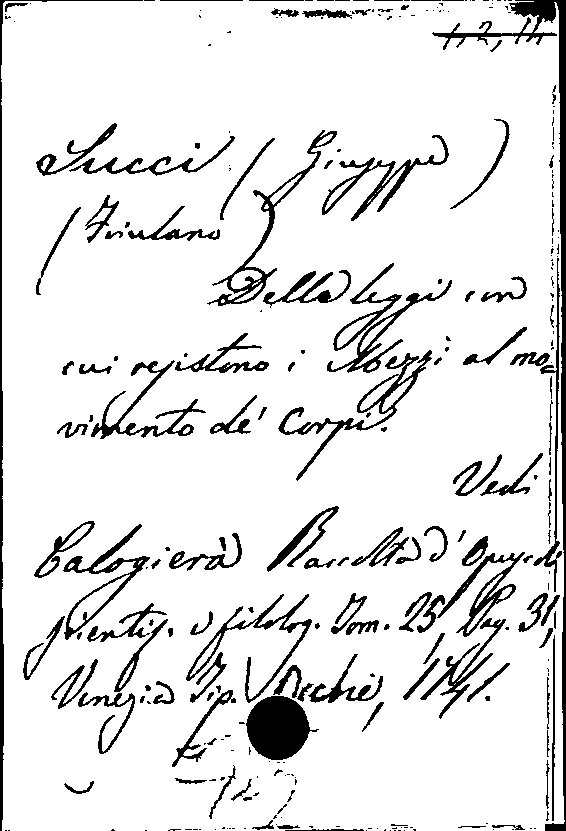 1, 2, 14
Succi (Giuseppe)
(Friulano)
Delle leggi con
cui resistono i Mezzi al mo=
vimento de' Corpi.
Vedi
Calogierà Raccolta d'Opuscoli
scientif. e filolog. Tom. 25, Pag. 31,
Venezia Tip. Occhi, 1741.